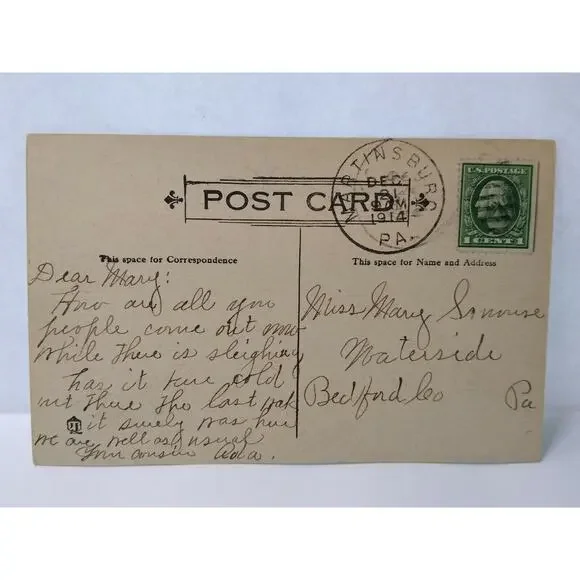 POST CARD
MARTINSBURG
DEC
21
9 AM
1914
PA.
U.S. POSTAGE
1 CENT 1
This space for Correspondence
This space for Name and Address
Dear Mary:
How are all you
people come out now
while there is sleighing
has it ture cold
out there the last wek
it surely was here
we are well as usual
Your cousin Ada.
Miss Mary
Waterside
Bedford Co Pa